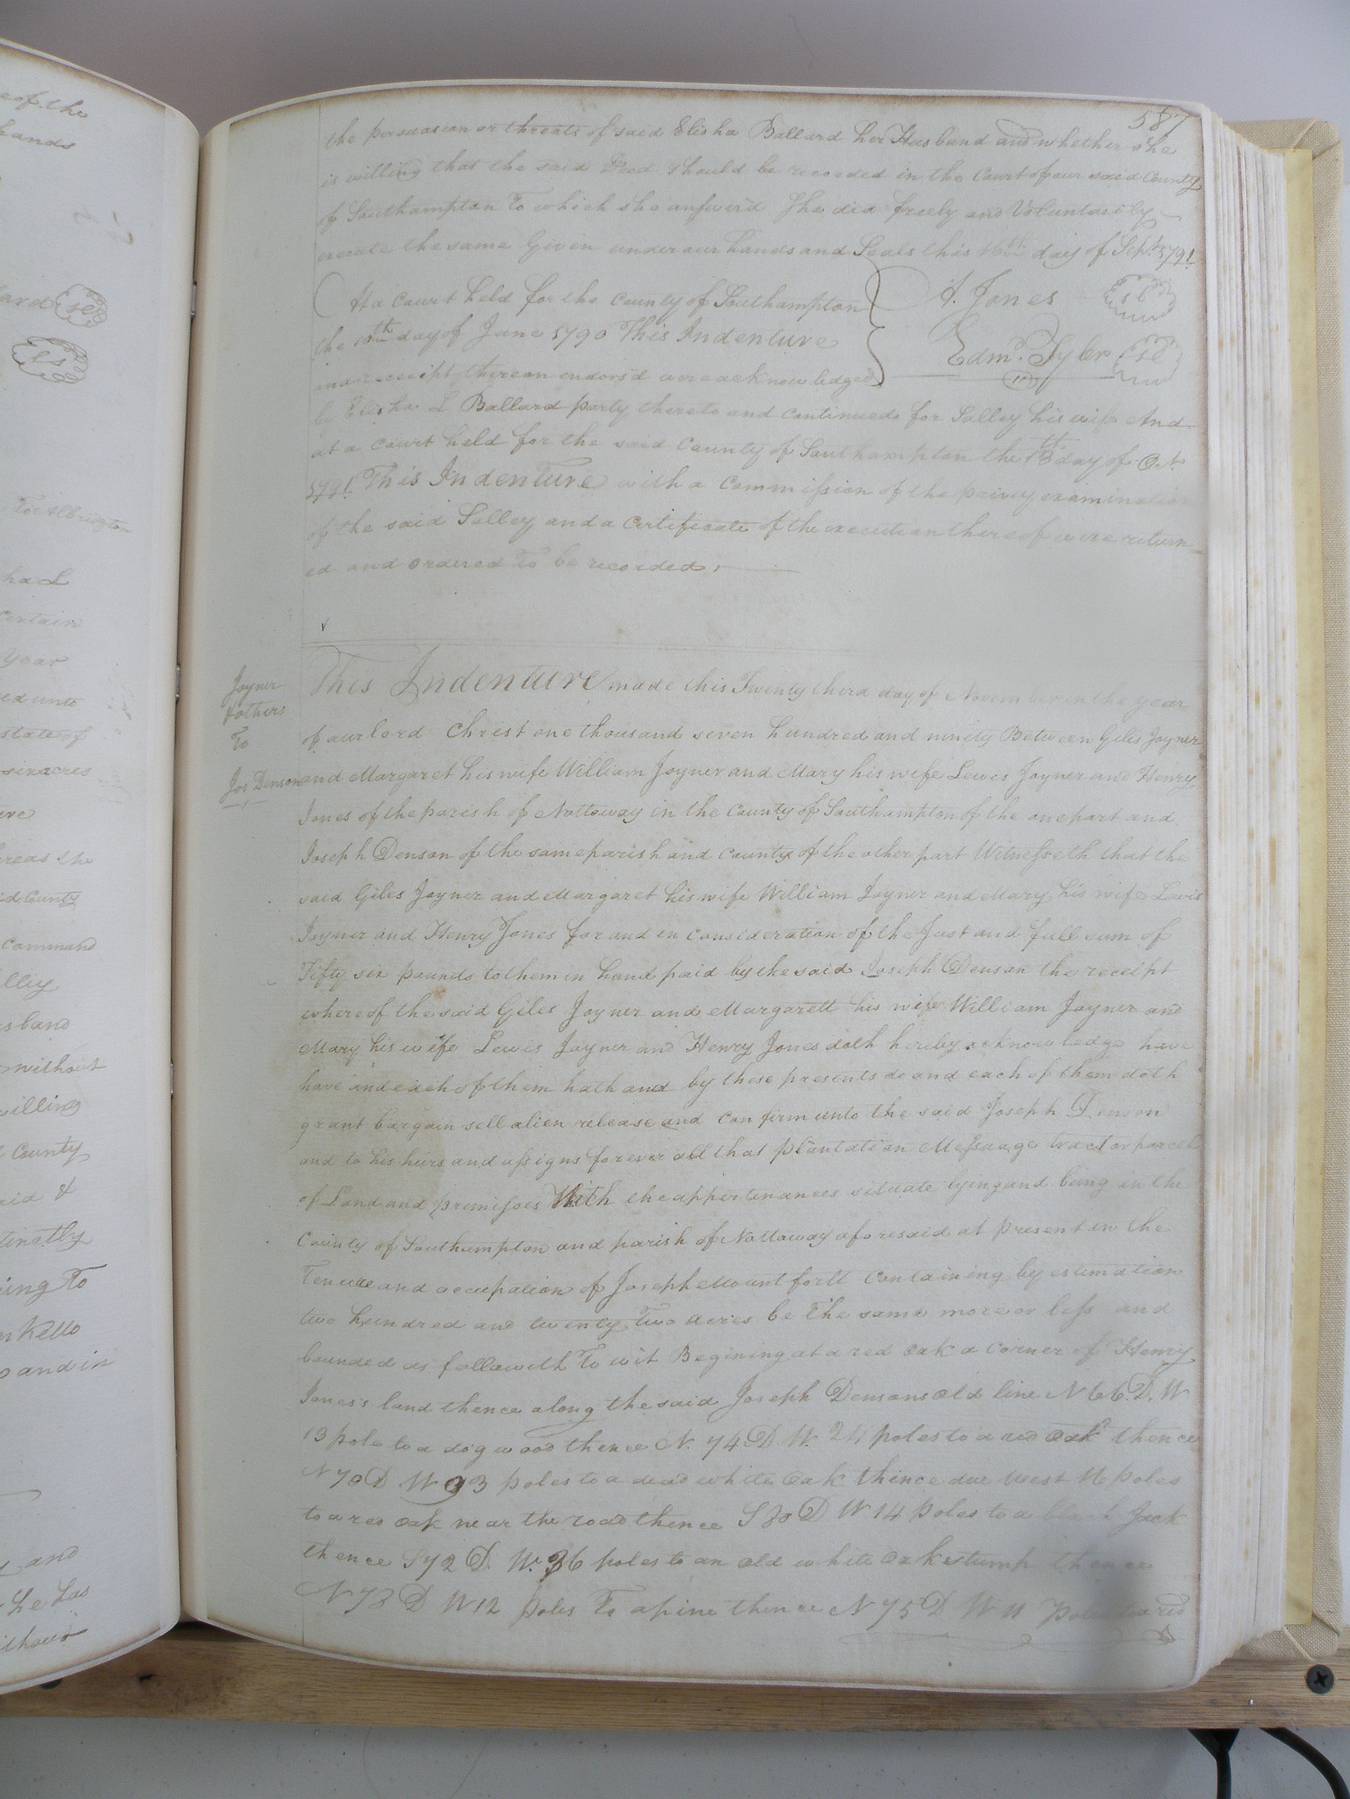 587
the persuasion or threats of said Elisha Ballard her Husband and whether she
is willing that the said Deed should be recorded in the Court of our said County
of Southampton To which she answer'd She did freely and Voluntarily
execute the same Given under our hands and Seals this 16th day of Sept. 1791
At a Court held for the County of Southampton
the day of June 1790 This Indenture
and receipt thereon endors'd were acknowledged
A. Jones
Edmd. Tyler
by Elisha L Ballard party thereto and continued for Salley his wife And
at a Court held for the said County of Southampton the 13th day of Oct.
1791 This Indenture with a Commission of the privy examination
of the said Salley and a Certificate of the execution thereof were return-
ed and ordered To be recorded.
Joyner
& others
To
Jos Denson
This Indenture made this Twenty third day of November in the year
of our lord Christ one thousand seven hundred and ninety Between Giles Joyner
and Margaret his wife William Joyner and Mary his wife Lewis Joyner and Henry
Jones of the parish of Nottoway in the County of Southampton of the one part and
Joseph Denson of the same parish and County of the other part Witnesseth that the
said Giles Joyner and Margaret his wife William Joyner and Mary his wife Lewis
Joyner and Henry Jones for and in consideration of the Just and full sum of
Fifty six pounds to them in hand paid by the said Joseph Denson the receipt
whereof the said Giles Joyner and Margarett his wife William Joyner and
Mary his wife Lewis Joyner and Henry Jones doth hereby acknowledge have
have and each of them hath and by these presents do and each of them doth
grant bargain sell alien release and confirm unto the said Joseph Denson
and to his heirs and assigns forever all that plantation Messuage tract or parcel
of Land and premisses With the appertenances situate lying and being in the
County of Southampton and parish of Nottoway aforesaid at present in the
Tenure and occupation of Joseph Mountfortt Containing by estimation
two hundred and twenty Two acres be the same more or less and
bounded as followeth To wit Begining at a red oak a corner of Henry
Jones's land thence along the said Joseph Densons old line N 66. D. W
13 pole to a dogwood thence N. 74 D W. 24 poles to a red oak thence
N 70 D. W 93 poles to a dead white oak thence due west 16 poles
to a red oak near the road thence S 80 D W 14 poles to a black Jack
thence S 72 D. W. 36 poles to an old white oak stump thence
N 73 D W 12 poles To a pine thence N 75 D W 11 poles to a red